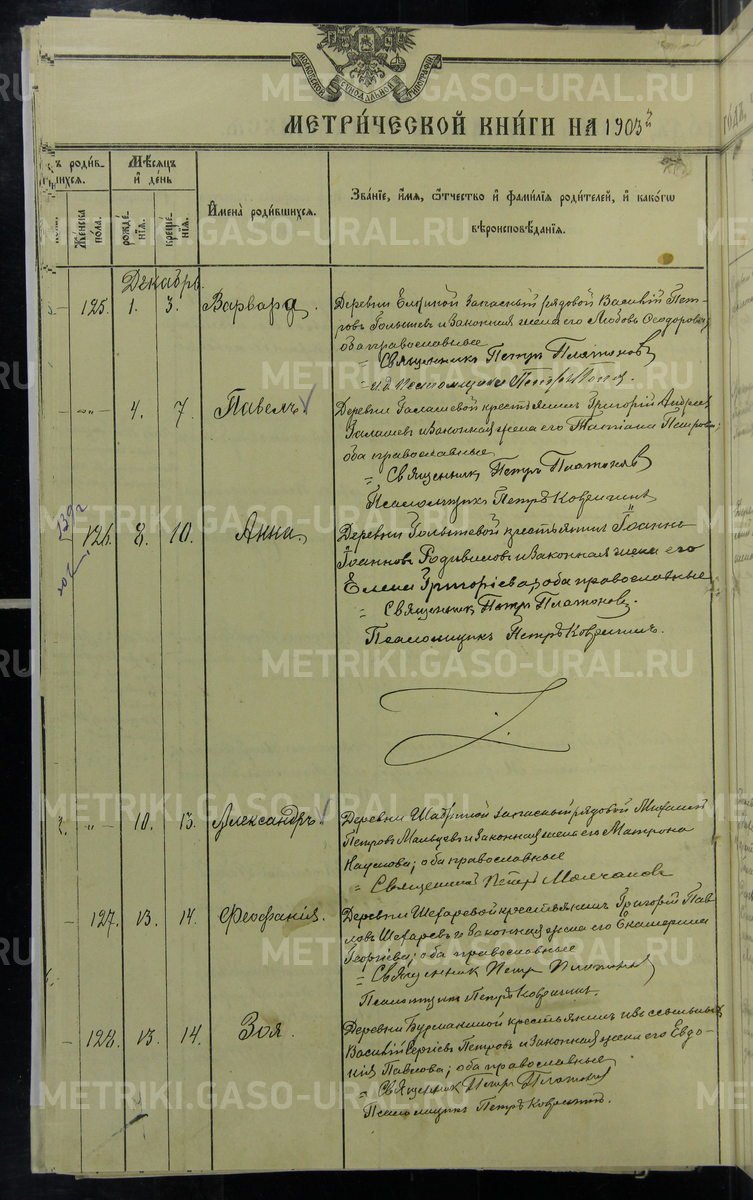 МОСКОВСКОЙ СѴНОДАЛЬНОЙ ТИПОГРАФІИ
МЕТРИ́ЧЕСКОЙ КНИ́ГИ НА 1903 г
ъ роди́в-
шихся.
Же́нска по́ла.
Мѣ́сяцъ и҆ де́нь
рожде́нїя.
креще́нїя.
И҆мена̀ роди́вшихся.
Зва́нїе, и҆́мя, ѻ҆́тчество и҆ фами́лїя роди́телей, и҆ како́гѡ
вѣроисповѣ́данїя.
Декабрь.
125. 1. 3. Варвара.
Деревни запасный рядовой Василій Пет-
ровъ Голышевъ и законная жена его Любовь Ѳеодорова,
оба православные
= Священникъ Петръ Платоновъ
= и.д. Псаломщика Петръ
-"- 4. 7. Павелъ.
Деревни Галашевой крестьянинъ Григорій Андреевъ
Галашевъ и законная жена его Татіана Петрова;
оба православные
= Священникъ Петръ Платоновъ
Псаломщикъ Петръ Ковригинъ
126. 8. 10. Анна.
Деревни Голышевой крестьянинъ Іоаннъ
Іоанновъ Родивиловъ и законная жена его
Елена Григоріева; оба православные
= Священникъ Петръ Платоновъ.
Псаломщикъ Петръ Ковригинъ.
-"- 10. 13. Александръ.
Деревни запасный рядовой Михаилъ
Петровъ Мальцевъ и законная жена его Матрона
Наумова; оба православные
= Священникъ Петръ Молчановъ
127. 13. 14. Ѳеофанія.
Деревни Шеѳаревой крестьянинъ Григорій Пав-
ловъ Шеѳаревъ и законная жена его Екатерина
Георгіева; оба православные
= Священникъ Петръ Платоновъ
Псаломщикъ Петръ Ковригинъ.
128. 13. 14. Зоя.
Деревни Бурмакиной крестьянинъ изъ ссыльныхъ
Василій Сергіевъ Петровъ и законная жена его Евдо-
кія Павлова; оба православные
= Священникъ Петръ Платоновъ
Псаломщикъ Петръ Ковригинъ.
METRIKI.GASO-URAL.RU